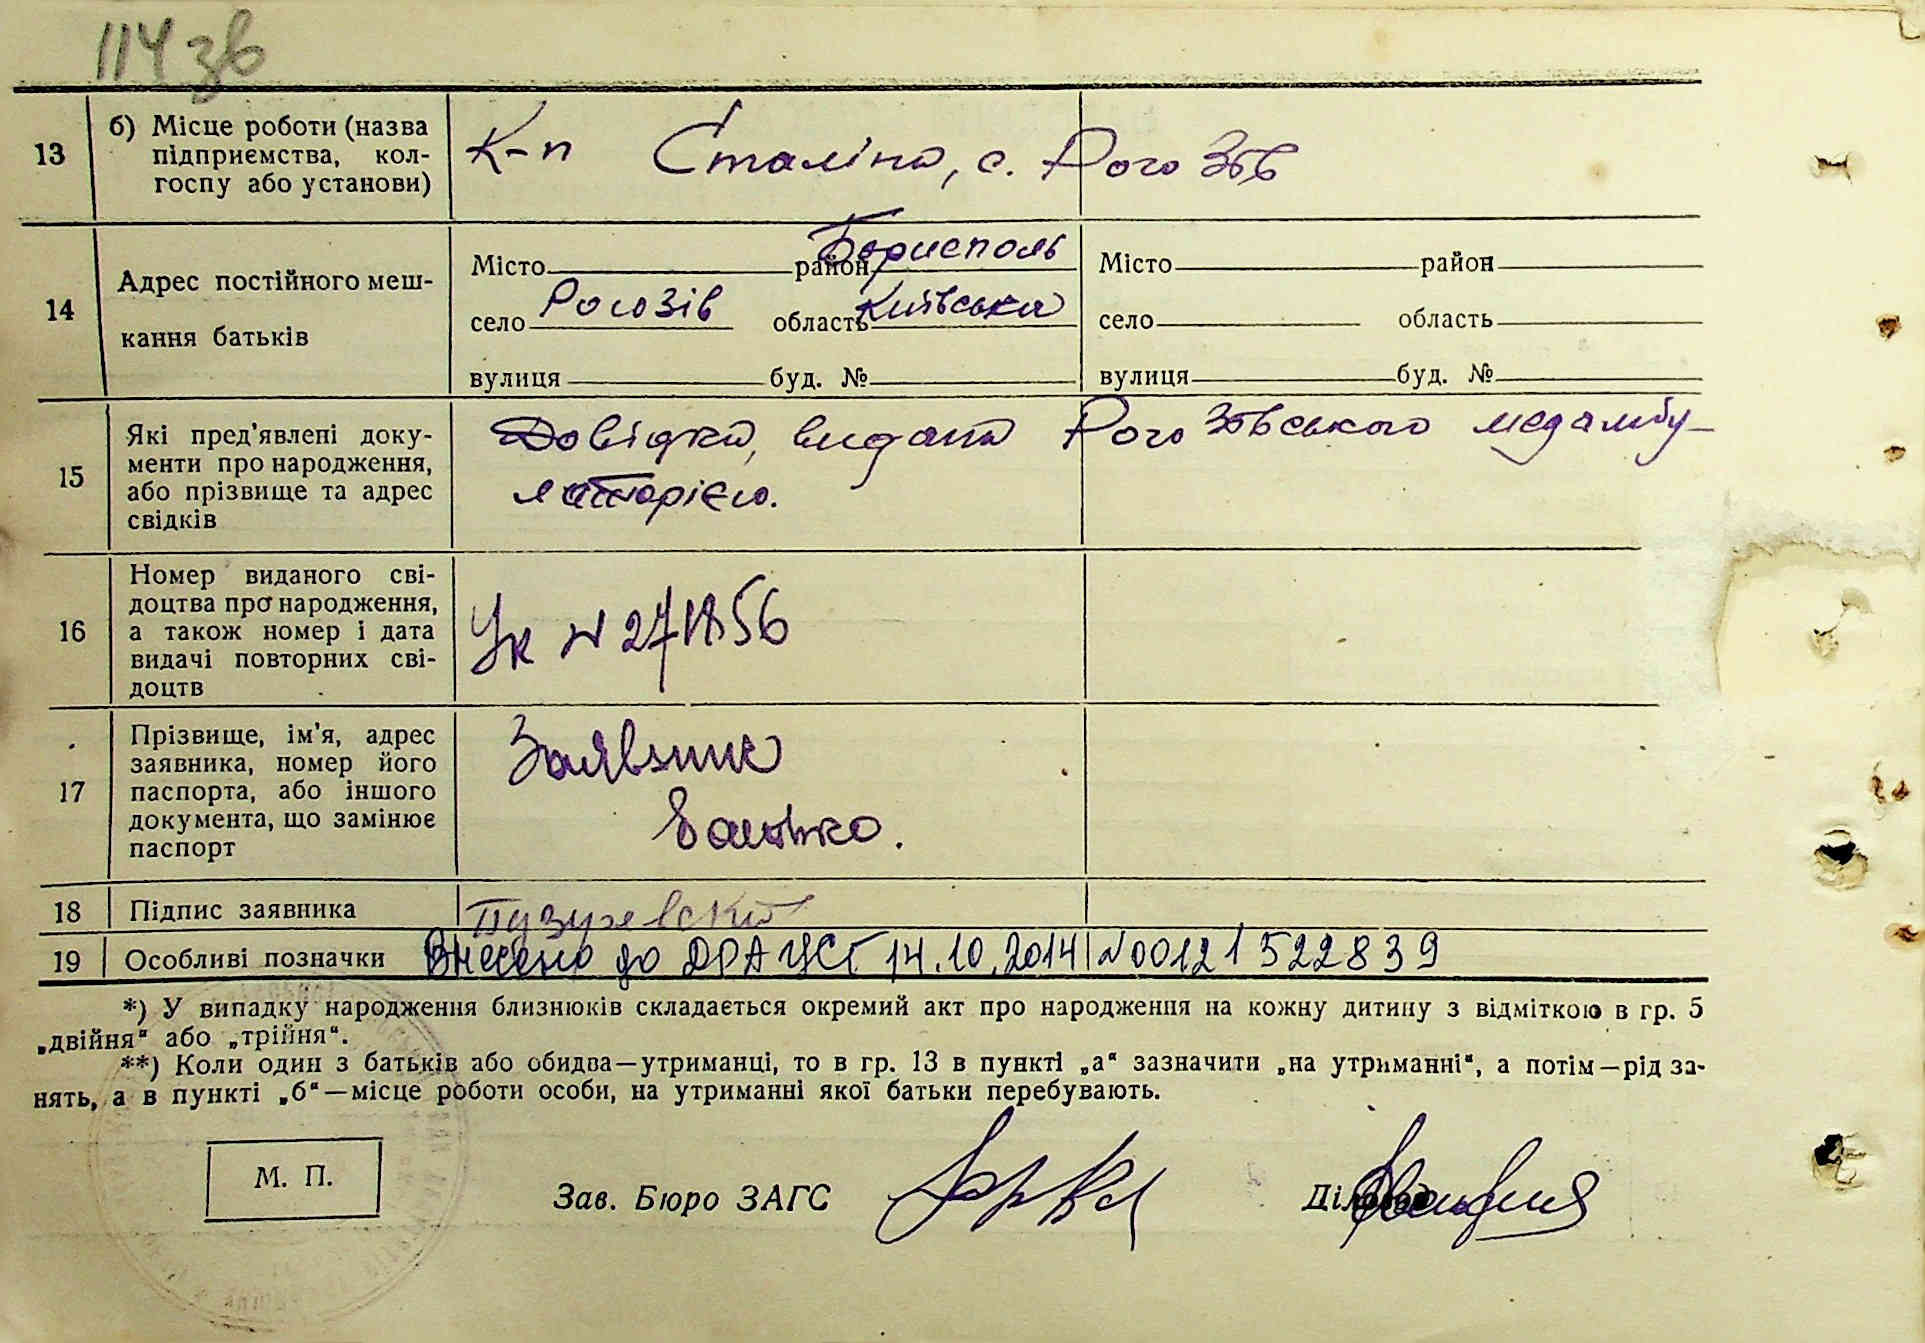 114 зв
13
б) Місце роботи (назва
підприємства, кол-
госпу або установи)
К-п Сталіна, с. Рогозів
14
Адрес постійного меш-
кання батьків
Місто район Бориспол​ь
село Рогозів область Київська
вулиця буд. №
Місто район
село область
вулиця буд. №
15
Які пред'явлені доку-
менти про народження,
або прізвище та адрес
свідків
Довідка, видана Рогозівського медамбу-
латорією.
16
Номер виданого сві-
доцтва про народження,
а також номер і дата
видачі повторних сві-
доцтв
Ук N 271856
17
Прізвище, ім'я, адрес
заявника, номер його
паспорта, або іншого
документа, що замінює
паспорт
Заявник
батько.
18
Підпис заявника
19
Особливі позначки
Внесено до ДРАЦСГ 14.10.2014 N00121522839
*) У випадку народження близнюків складається окремий акт про народження на кожну дитину з відміткою в гр. 5
„двійня" або „трійня".
**) Коли один з батьків або обидва—утриманці, то в гр. 13 в пункті „а" зазначити „на утриманні", а потім—рід за-
нять, а в пункті „б"—місце роботи особи, на утриманні якої батьки перебувають.
М. П.
Зав. Бюро ЗАГС